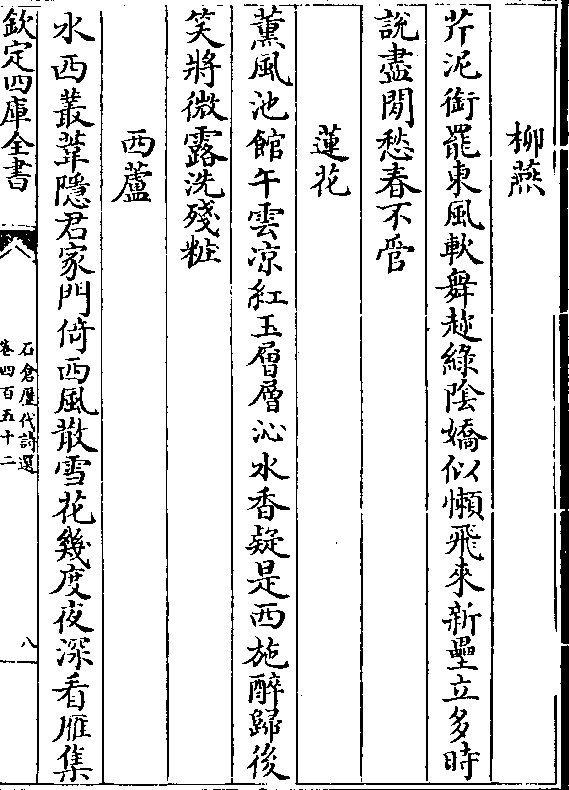 柳燕
芹泥銜罷東風軟舞趂綠陰嬌似懶飛來新壘立多時
說盡閒愁春不管
蓮花
薫風池館午雲凉紅玉層層沁水香疑是西施醉歸後
笑將微露洗殘粧
西蘆
水西叢葦隱君家門倚西風散雪花幾度夜深看雁集
欽定四庫全書
石倉歷代詩選
卷四百五十二
八